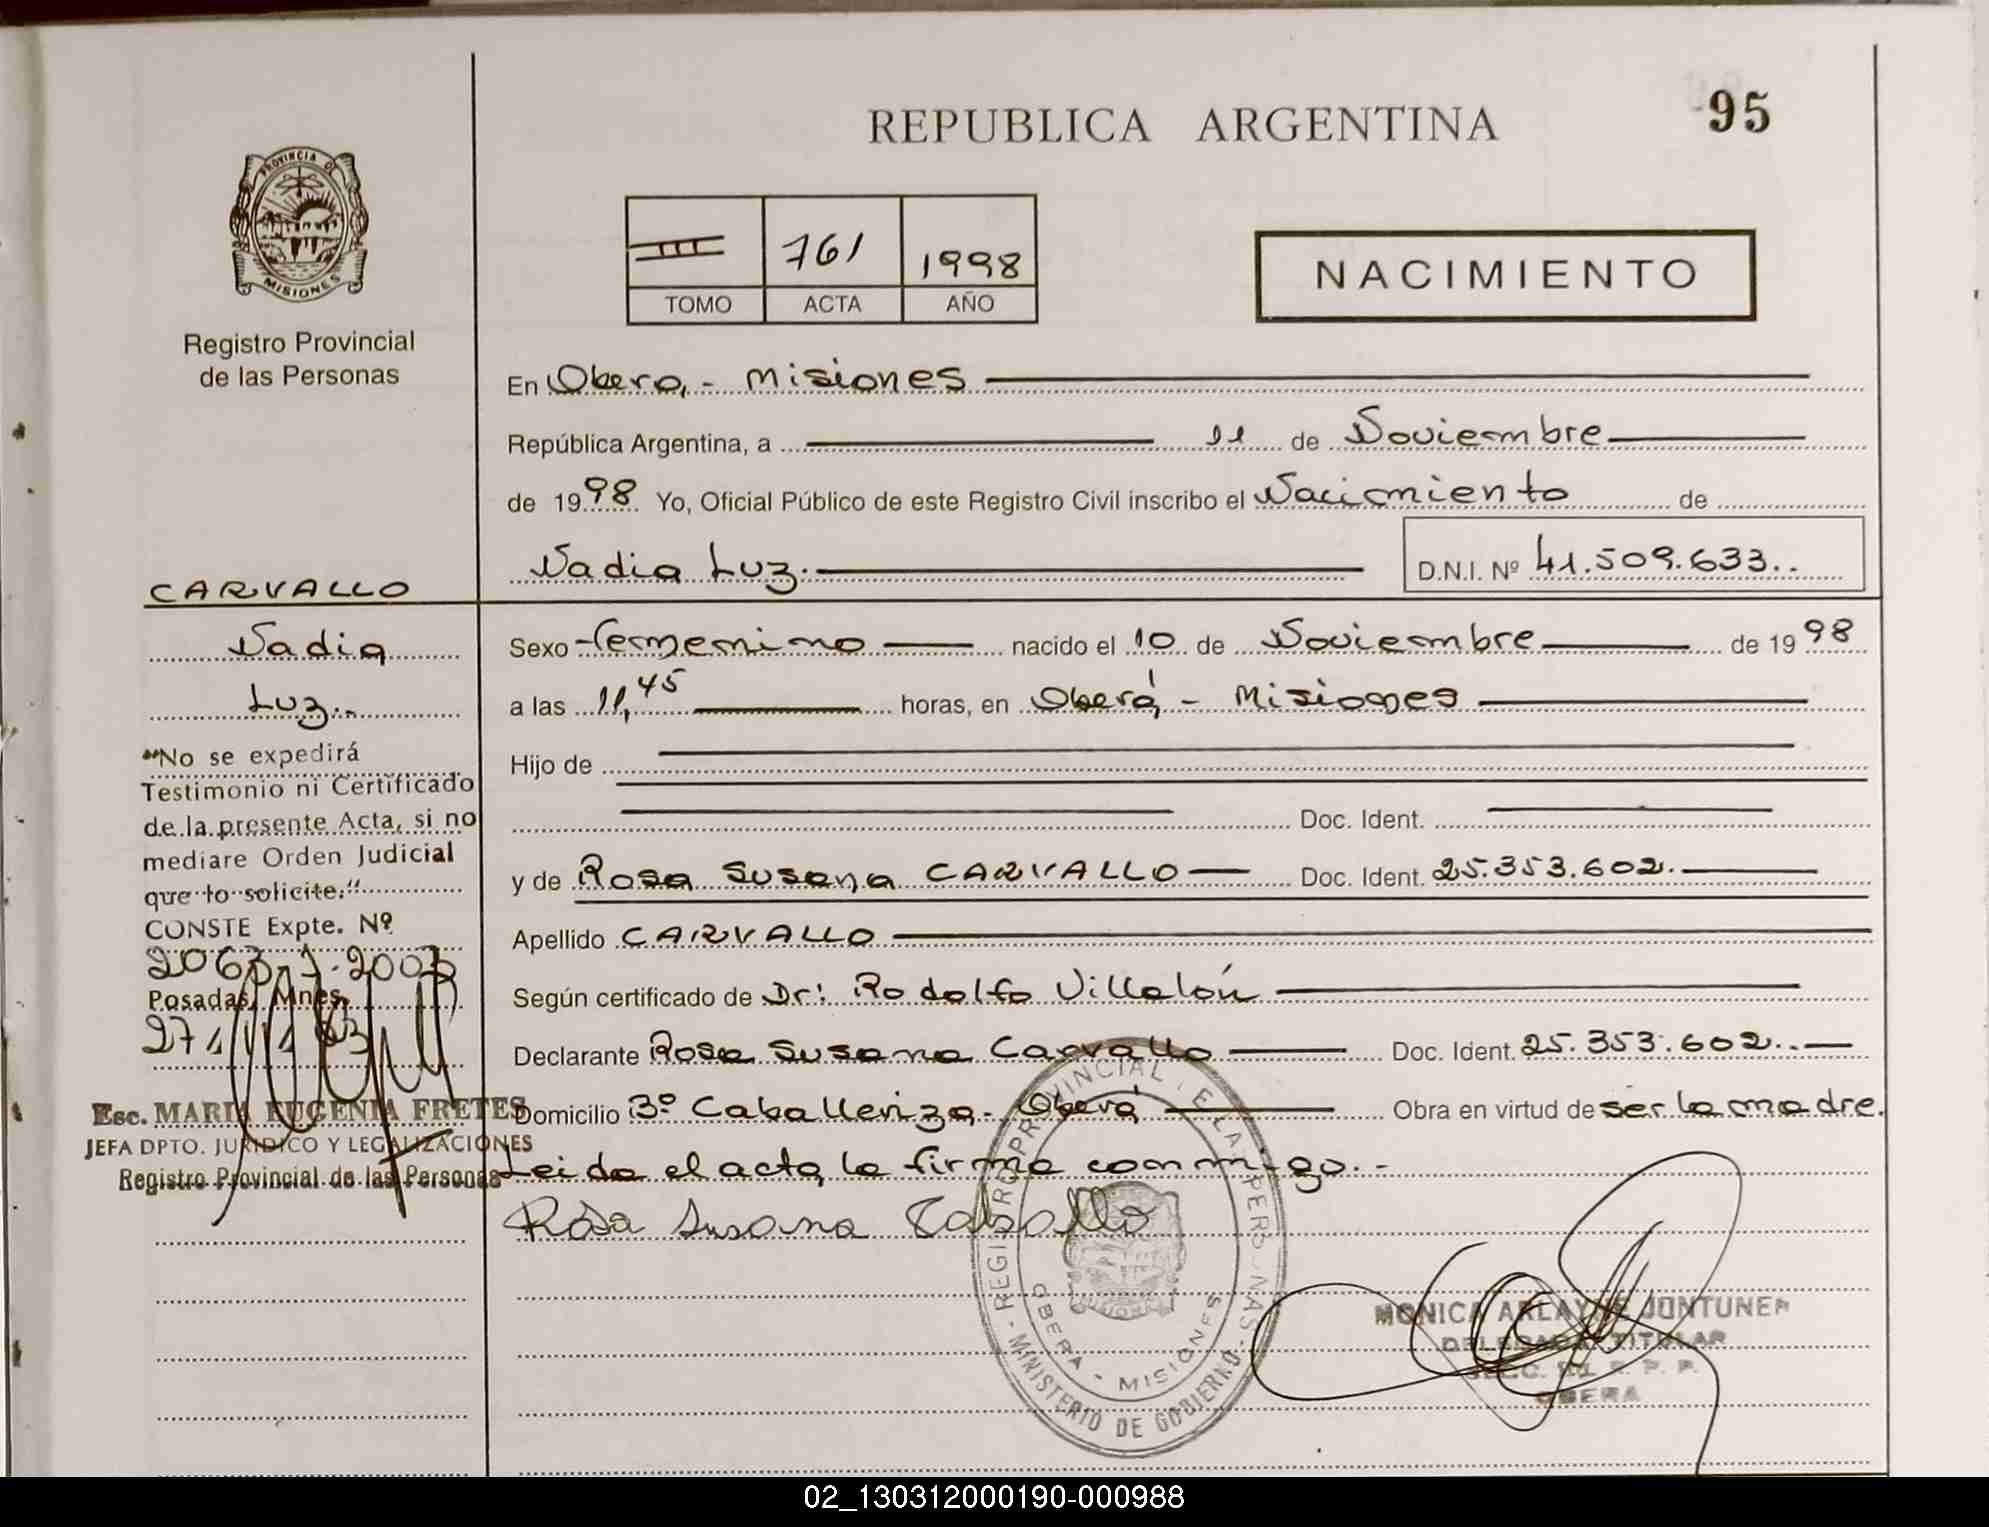 REPUBLICA ARGENTINA
95
PROVINCIA DE
MISIONES
Registro Provincial
de las Personas
761 1998
TOMO ACTA AÑO
NACIMIENTO
En Obera, - Misiones
República Argentina, a 11 de Noviembre
de 1998 Yo, Oficial Público de este Registro Civil inscribo el Nacimiento de
Nadia Luz.
D.N.I. Nº 41.509.633..
CARVALLO
Nadia
Luz..
"No se expedirá
Testimonio ni Certificado
de la presente Acta, si no
mediare Orden Judicial
que lo solicite."
CONSTE Expte. Nº
Posadas, Mnes.
Esc. MARIA EUGENIA FRETES
JEFA DPTO. JURIDICO Y LEGALIZACIONES
Registro Provincial de las Personas
Sexo femenino nacido el 10 de Noviembre de 1998
a las 11,45 horas, en Oberá, - Misiones
Hijo de
Doc. Ident.
y de Rosa Susana CARVALLO Doc. Ident. 25.353.602.
Apellido CARVALLO
Según certificado de Dr: Rodolfo Villalón
Declarante Rosa Susana Carvallo Doc. Ident. 25.353.602..
Domicilio 3º Caballeriza - Oberá Obra en virtud de ser la madre.
Leida el acta, la firma conmigo. -
Rosa Susana Carvallo
REGISTRO PROVINCIAL DE LAS PERSONAS - MINISTERIO DE GOBIERNO
OBERA - MISIONES
MONICA ARLAYNE JUNTUNEN
DELEGADA TITULAR
OBERA
02_130312000190-000988